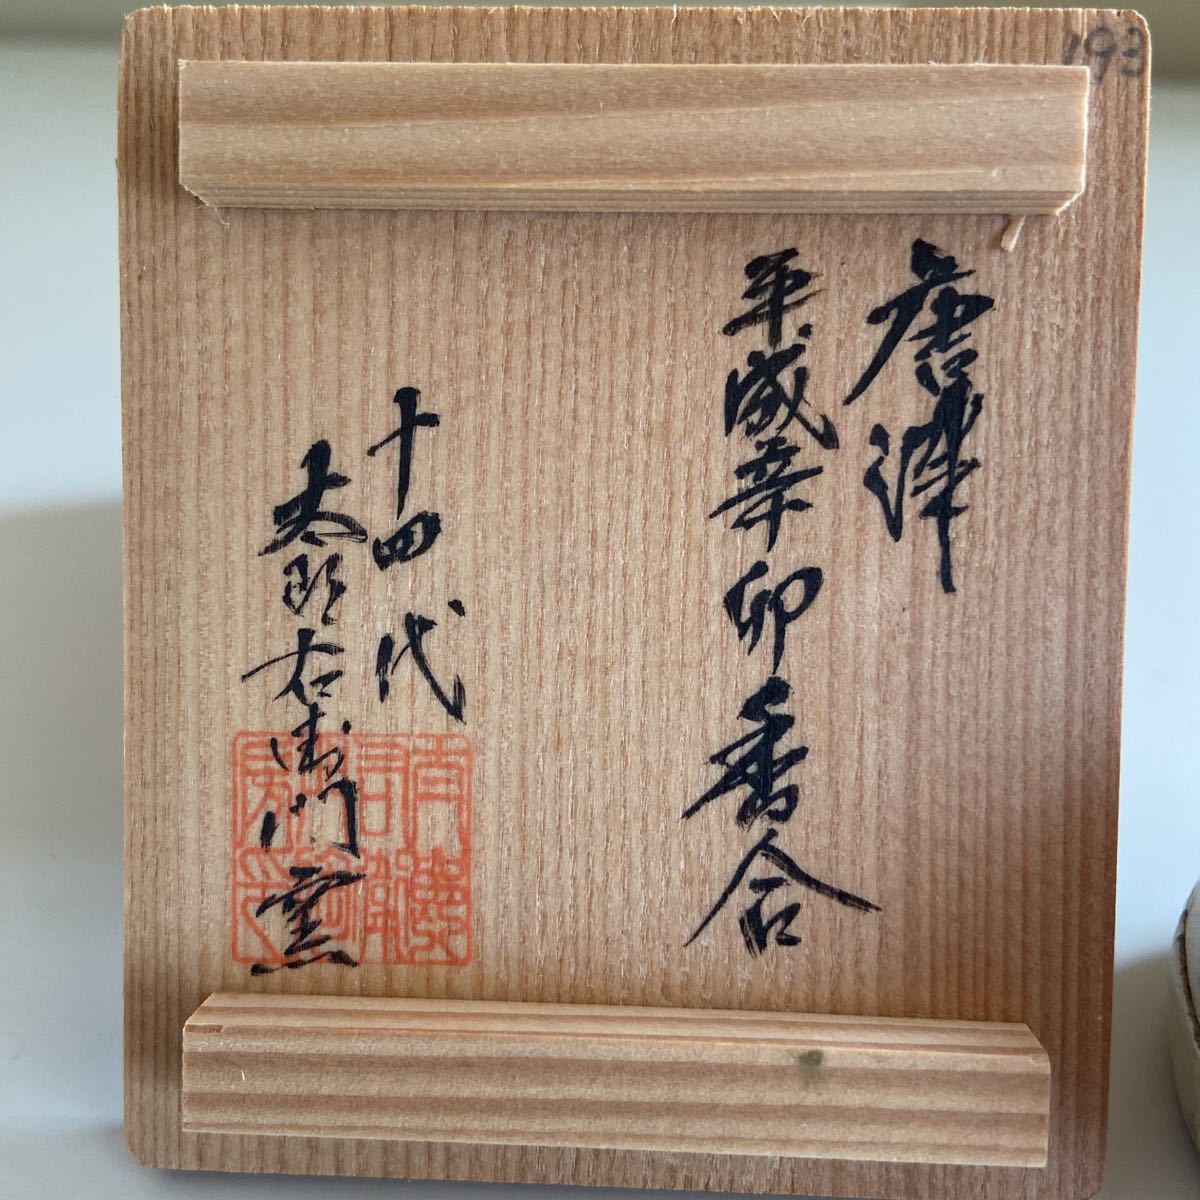 193
唐津
平成辛卯香合
十四代
太郎右衛門窯